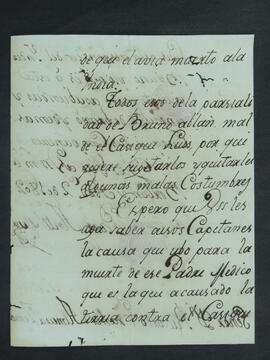 de que el avia muerto ala
India.
Todos esos de la parsiali
dad de Bruno allan mal
de Casique Luis, por que
quiere sugetarlos y quitarles
algunas malas Costumbres
Espero que les
aga saber a esos Capitanes
la causa que ubo para la
muerte de ese Padre Medico
que es la que a causado la
tirria contra el Casique